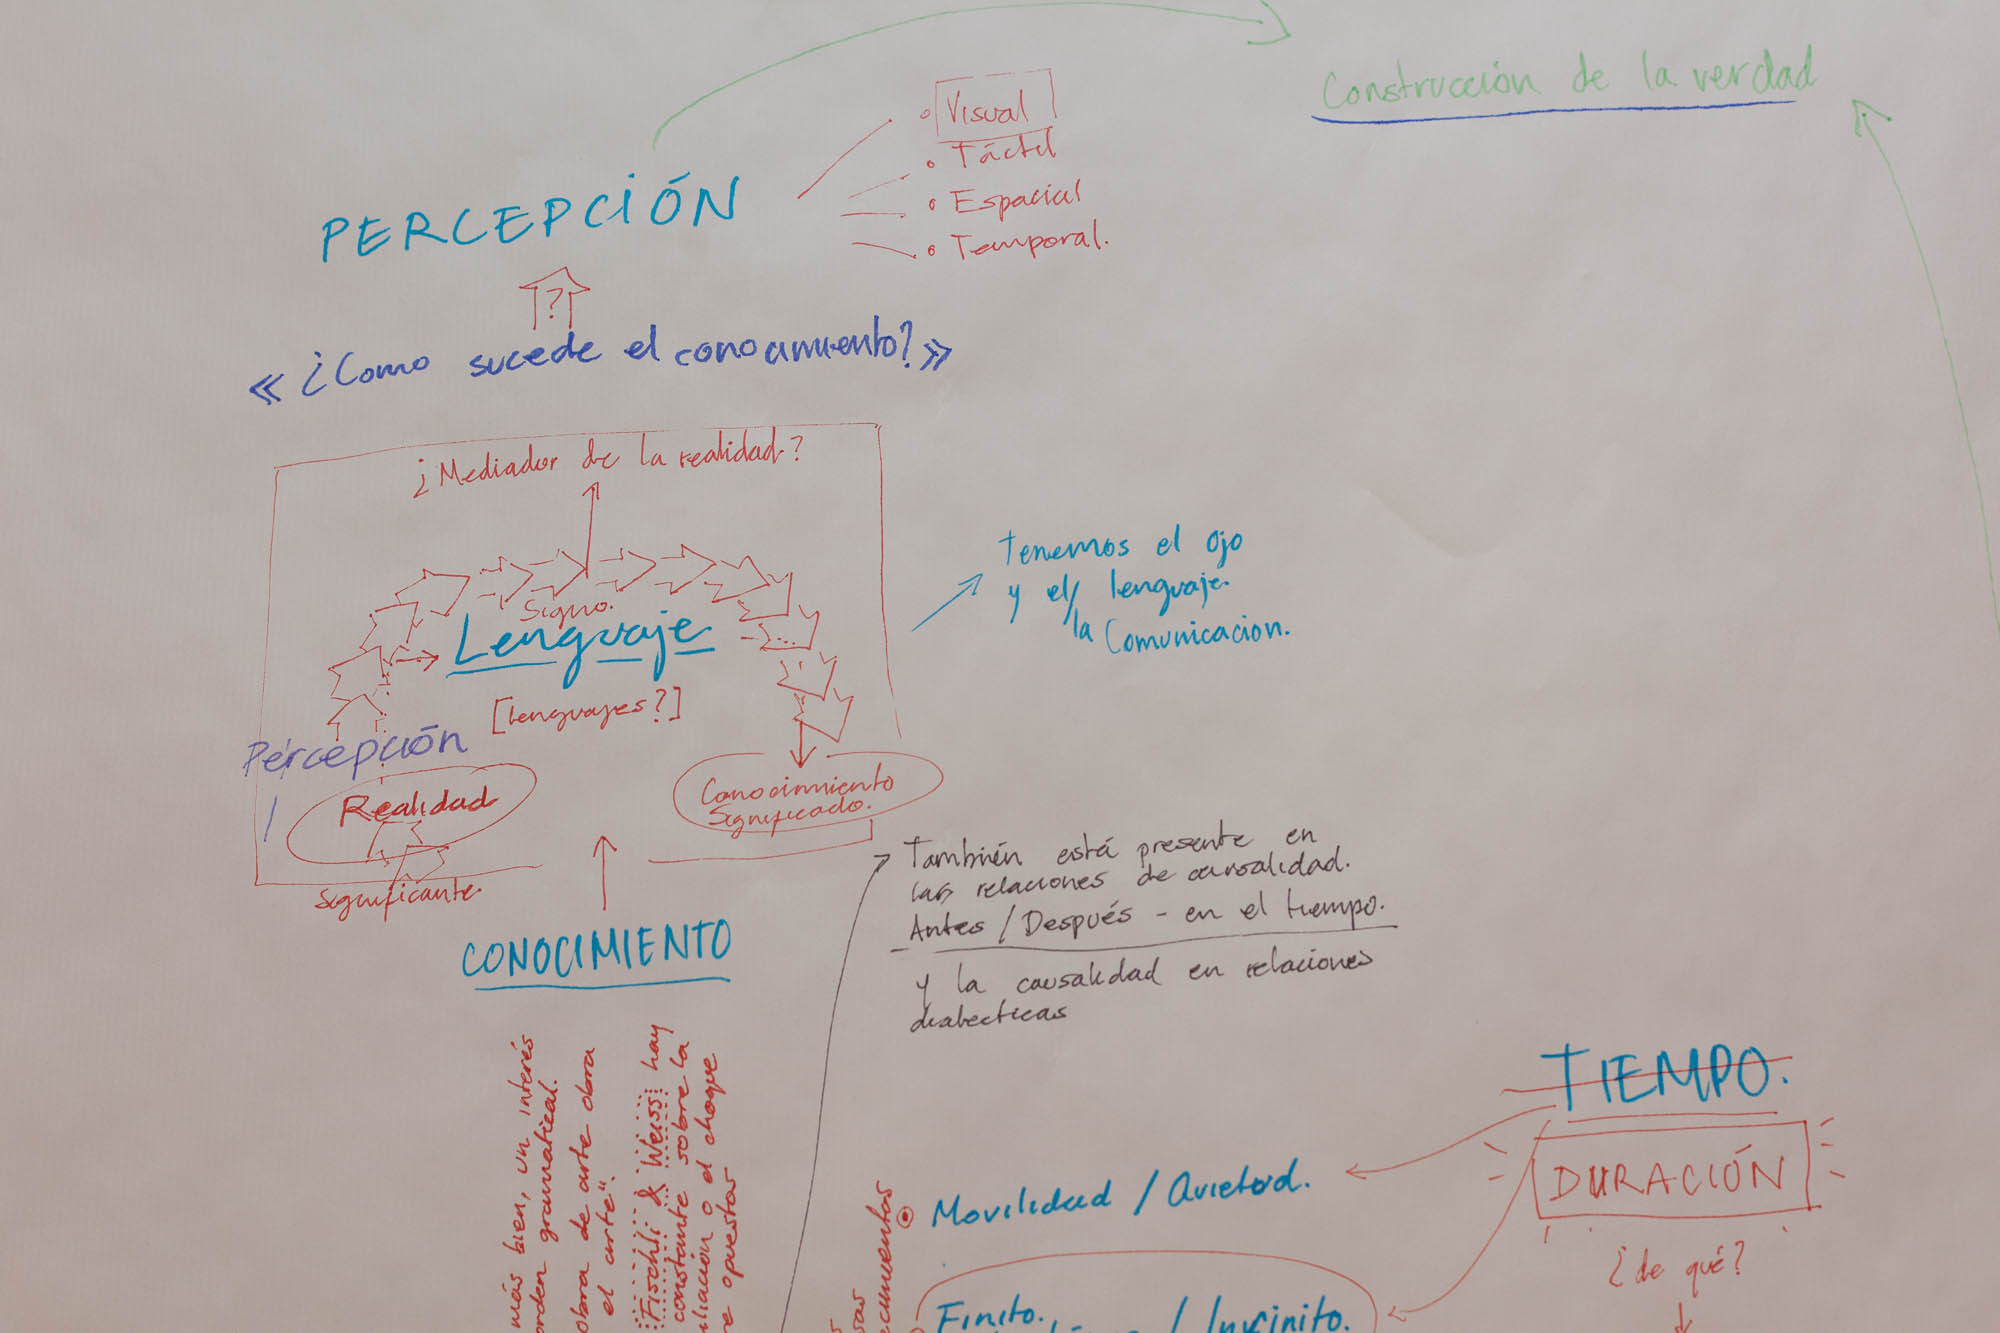 Construcción de la verdad
• Visual
• Táctil
• Espacial
• Temporal.
PERCEPCIÓN
?
« ¿Como sucede el conocimiento? »
¿Mediador de la realidad?
Signo.
Lenguaje
[lenguajes?]
Percepción
Realidad
Significante
Conocimiento
Significado.
Tenemos el ojo
y el/ lenguaje.
la Comunicacion.
CONOCIMIENTO
También está presente en
las relaciones de causalidad.
Antes / Después - en el tiempo.
y la causalidad en relaciones
dialecticas
más bien, un interés
orden gramatical.
obra de arte obra
el arte".
Fischli & Weiss hay
constante sobre la
o el choque
opuestas
TIEMPO.
DURACIÓN
¿de qué?
Movilidad / Quietud.
Finito.
/ Infinito.